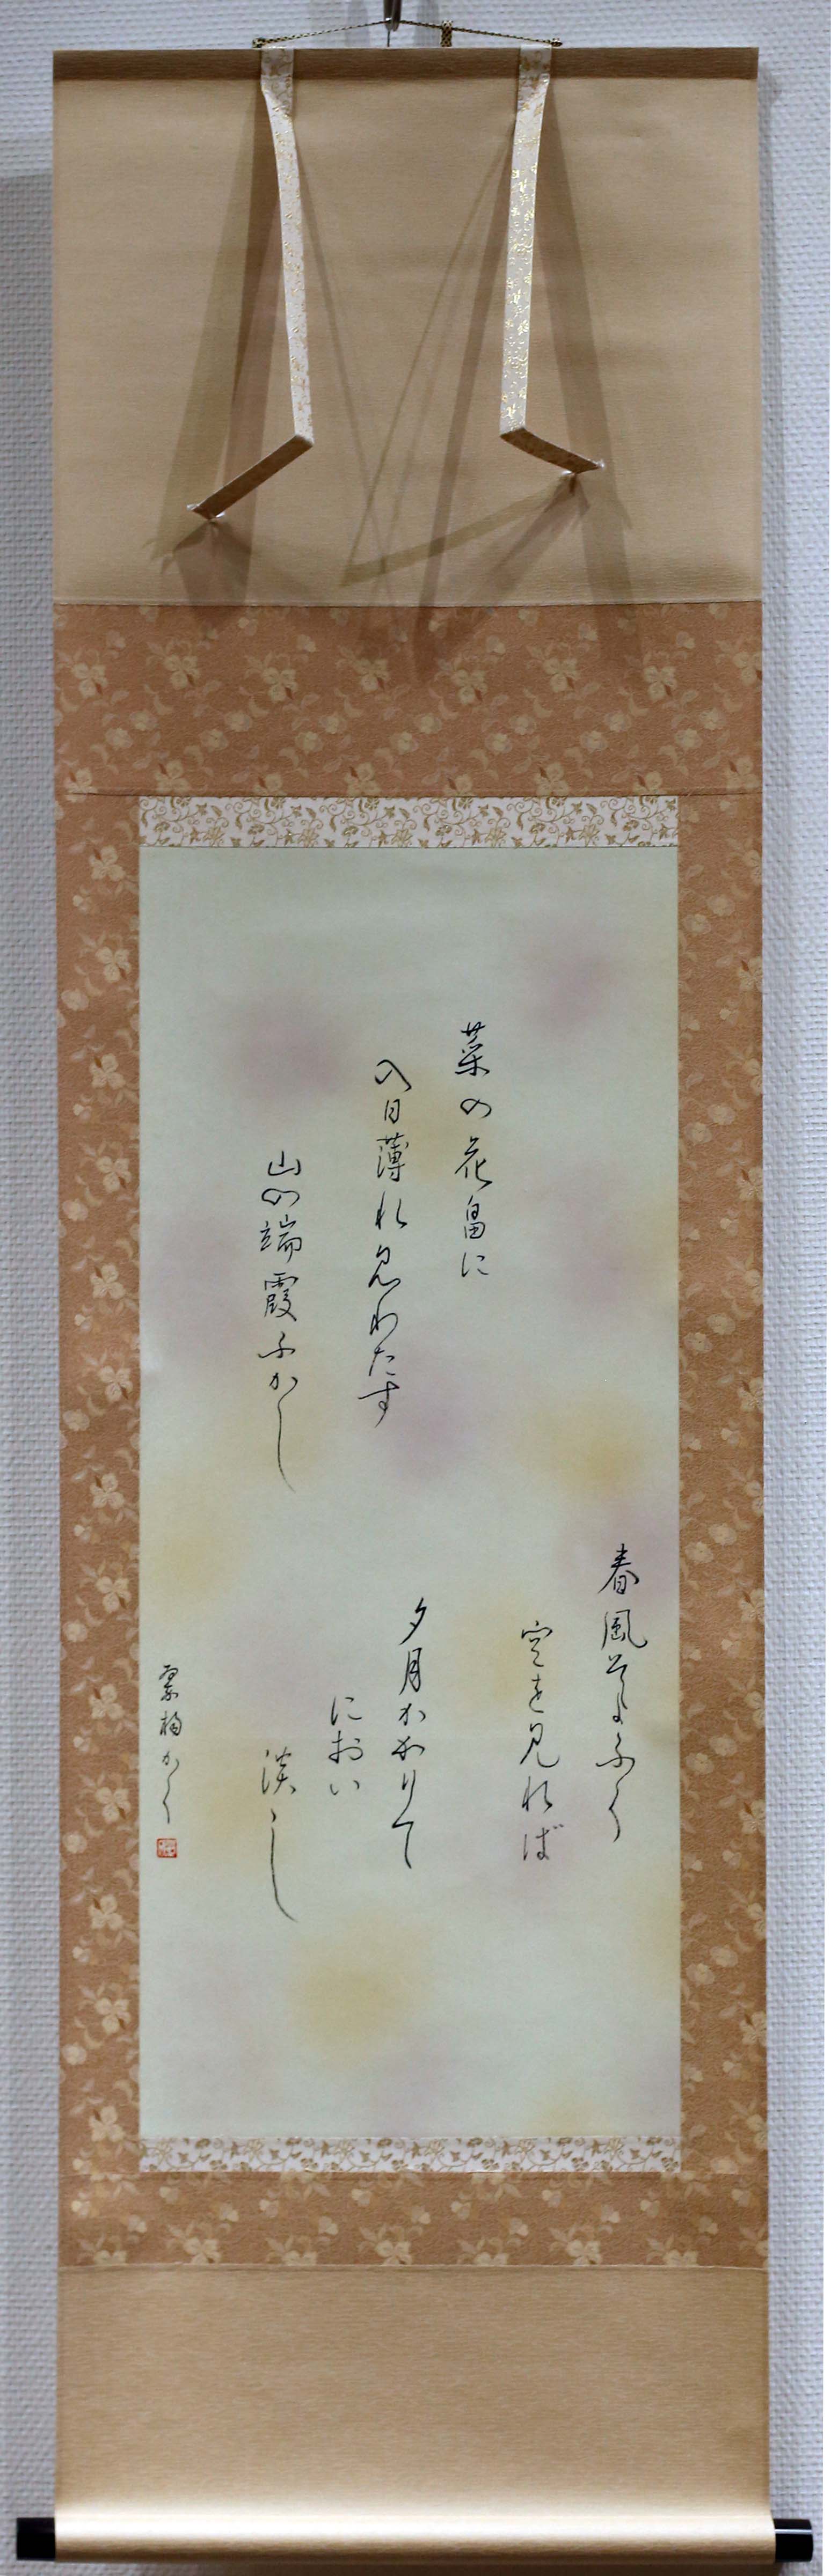 菜の花畠に
入日薄れ見わたす
山の端霞ふかし
春風そよふく
空を見れば
夕月かかりて
におい
淡し
かく